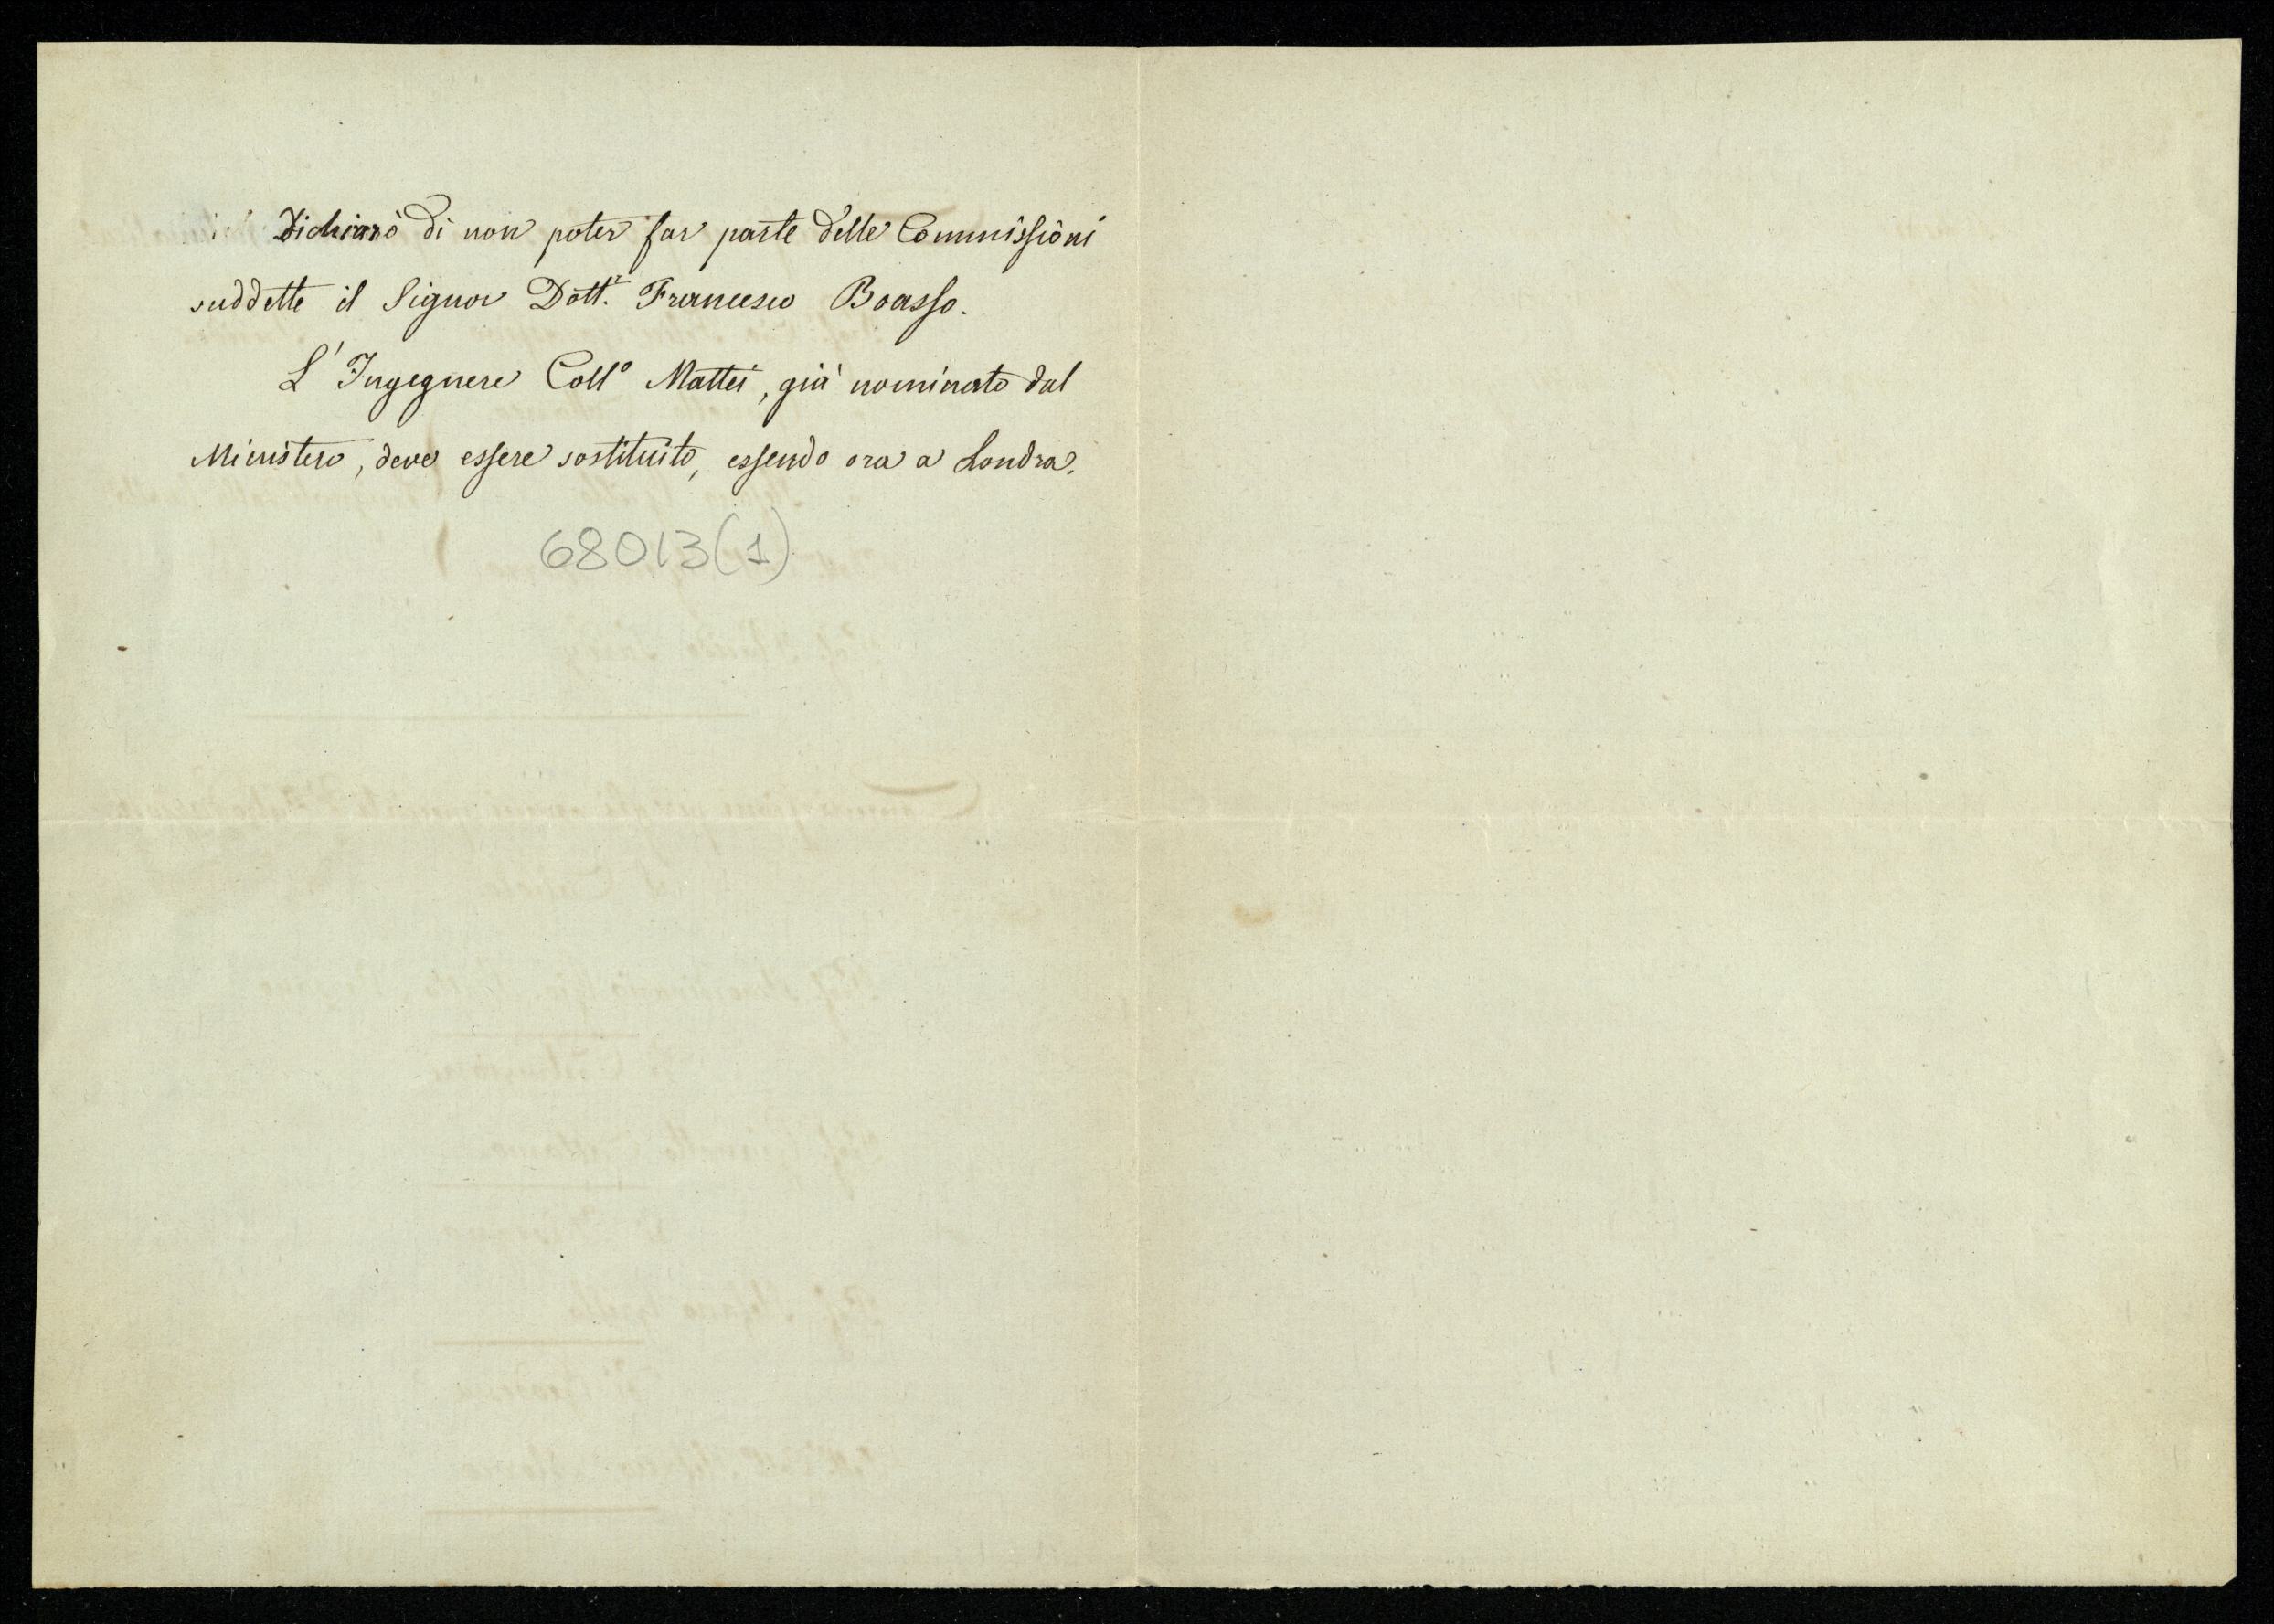 Dichiarò di non poter far parte delle Commissioni
suddette il Signor Dott.r Francesco Boasso.
L'Ingegnere Coll.o Mattei, già nominato dal
Ministero, deve essere sostituito, essendo ora a Londra.
68013(1)